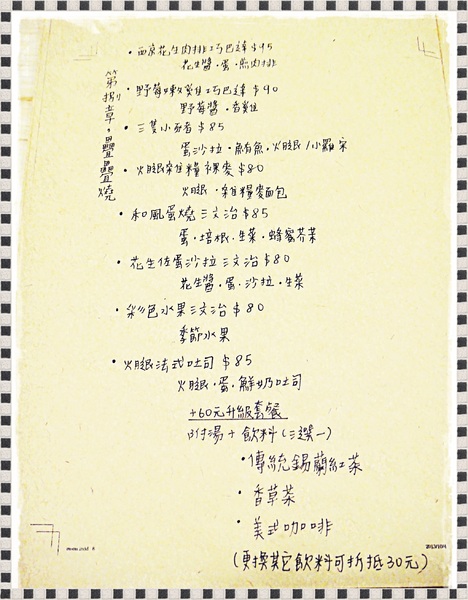 第捌章,豐豐燒
• 西京花生肉排巧巴達 $95
花生醬・蛋・煎肉排
• 野莓嫩雞巧巴達 $90
野莓醬・香雞
• 三隻小 $85
蛋沙拉・鮪魚・火腿/小羅宋
• 火腿雜糧裸麥 $80
火腿・雜糧麵包
• 和風蛋燒三文治 $85
蛋・培根・生菜・蜂蜜芥茉
• 花生佐蛋沙拉三文治 $80
花生醬・蛋・沙拉・生菜
• 彩色水果三文治 $80
季節水果
• 火腿法式吐司 $85
火腿・蛋・鮮奶吐司
+60元升級套餐
附湯+飲料(三選一)
• 傳統錫蘭紅茶
• 香草茶
• 美式咖啡
(更換其它飲料可折抵30元)